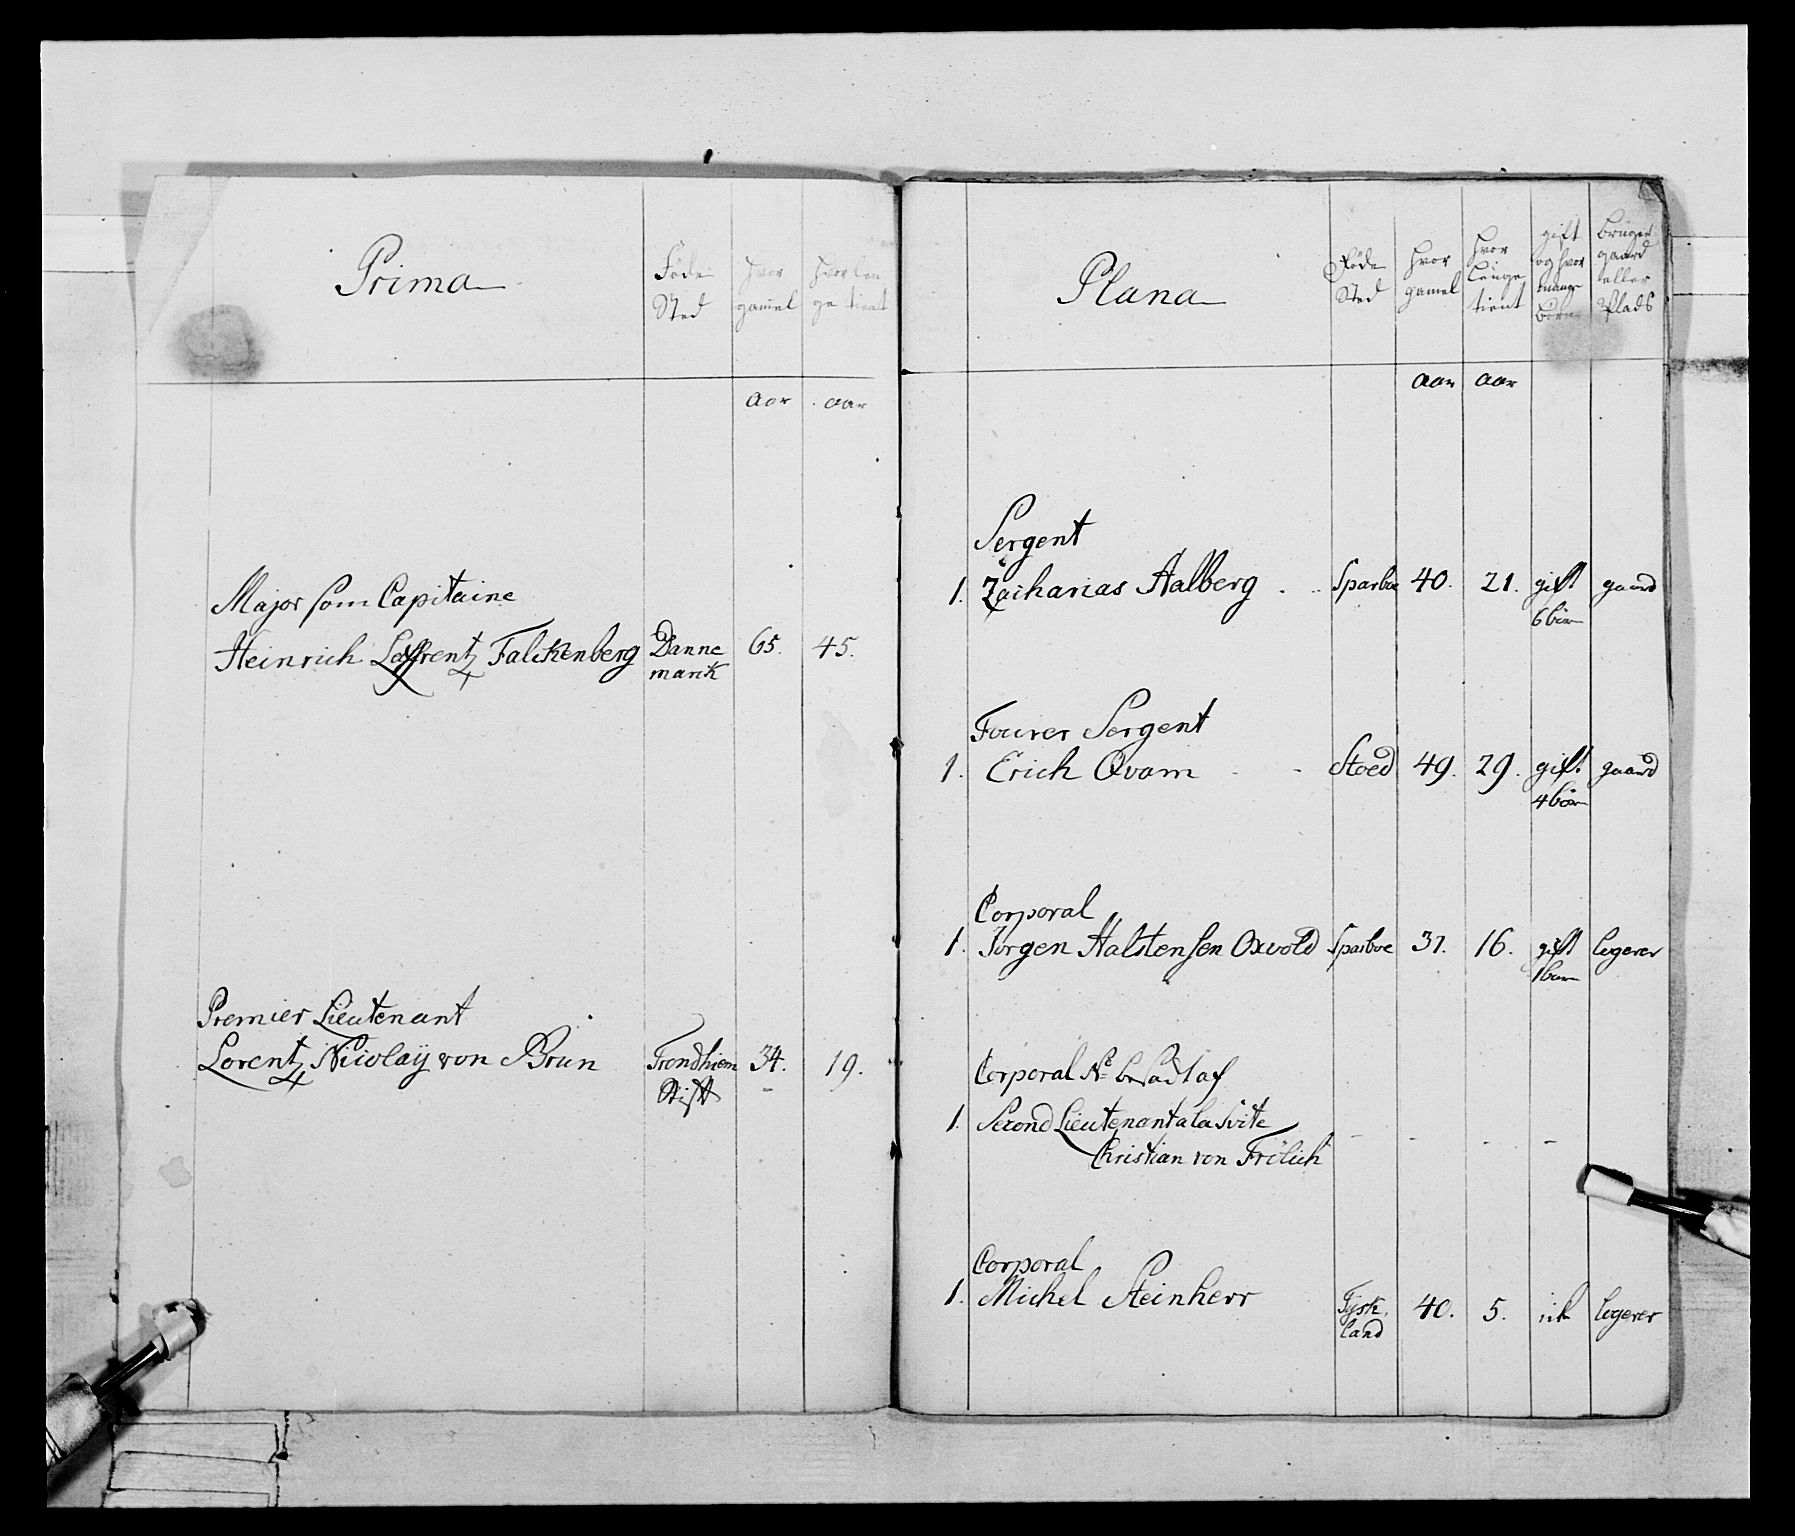 Prima
Føde Sted
hvor gamel
hvor længe tient
aar
aar
Major som Capitaine
Heinrich Laurentz Falckenberg Danne 65. 45.
marck
Premier Lieutenant
Lorentz Nicolaÿ von Brun Trondhiem 34. 19.
Stift
Plana
Føde Sted
hvor gamel
hvor Længe tient
gift og hvor mange børn
bruger gaard eller Plads
aar
aar
Sergent
1. Zacharias Aalberg Sparboe 40. 21. gift gaard
6 børn
Fourer Sergent
1. Erich Qvam Stoed 49. 29. gift gaard
4 børn
Corporal
1. Jörgen Halstensen Oxvold Sparboe 37. 16. gift logerer
1 barn
Corporal No besadt af
1. Second Lieutenant a la Svite
Christian von Frölich
Corporal
1. Michel Steinherr Tÿsk 40. 5. nk logerer
land